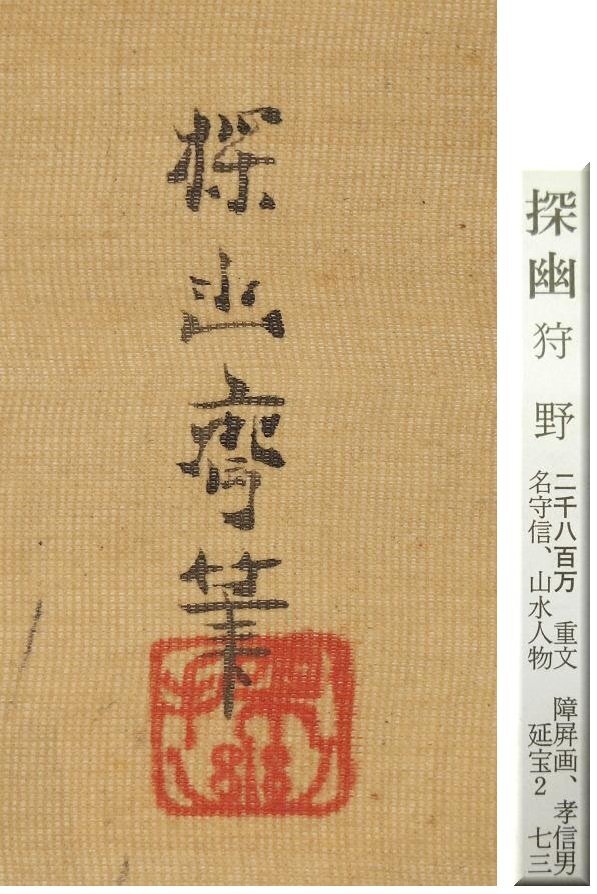 探幽齋筆
探幽 狩野
二千八百万 重文 障屏画、孝信男
名守信、山水人物 延宝2 七三